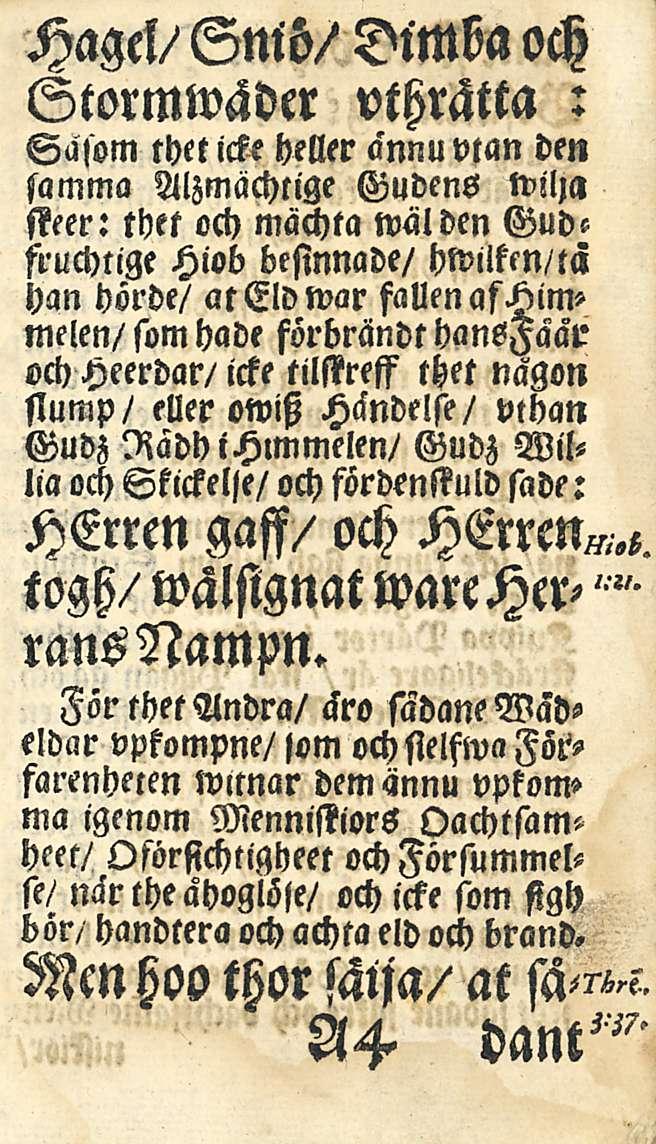 Hagel/ Sniö/ Dimba och
Stormwäder vthrätta :
Såsom thet icke heller ännu vtan den
samma Alzmächtige Gudens wilja
skeer: thet och mächta wäl den Gud-
fruchtige Hiob besinnade/ hwilken/ tå
han hörde/ at Eld war fallen af Him-
melen/ som hade förbrändt hans Fåår
och Heerdar/ icke tilskreff thet någon
slump / eller owiß Händelse / vthan
Gudz Rådh i Himmelen/ Gudz Wil-
lia och Skickelse/ och fördenskuld sade:
HErren gaff/ och HErren Hiob.
togh/ wälsignat ware Her- 1:21.
rans Nampn.
För thet Andra/ äro sådane Wåd-
eldar vpkompne/ som och sielfwa För-
farenheten witnar dem ännu vpkom-
ma igenom Menniskiors Oachtsam-
heet/ Oförsichtigheet och Försummel-
se/ när the åhoglöse/ och icke som sigh
bör/ handtera och achta eld och brand.
Men hoo thor säija/ at så- Thrē.
A 4 dant 3:37.